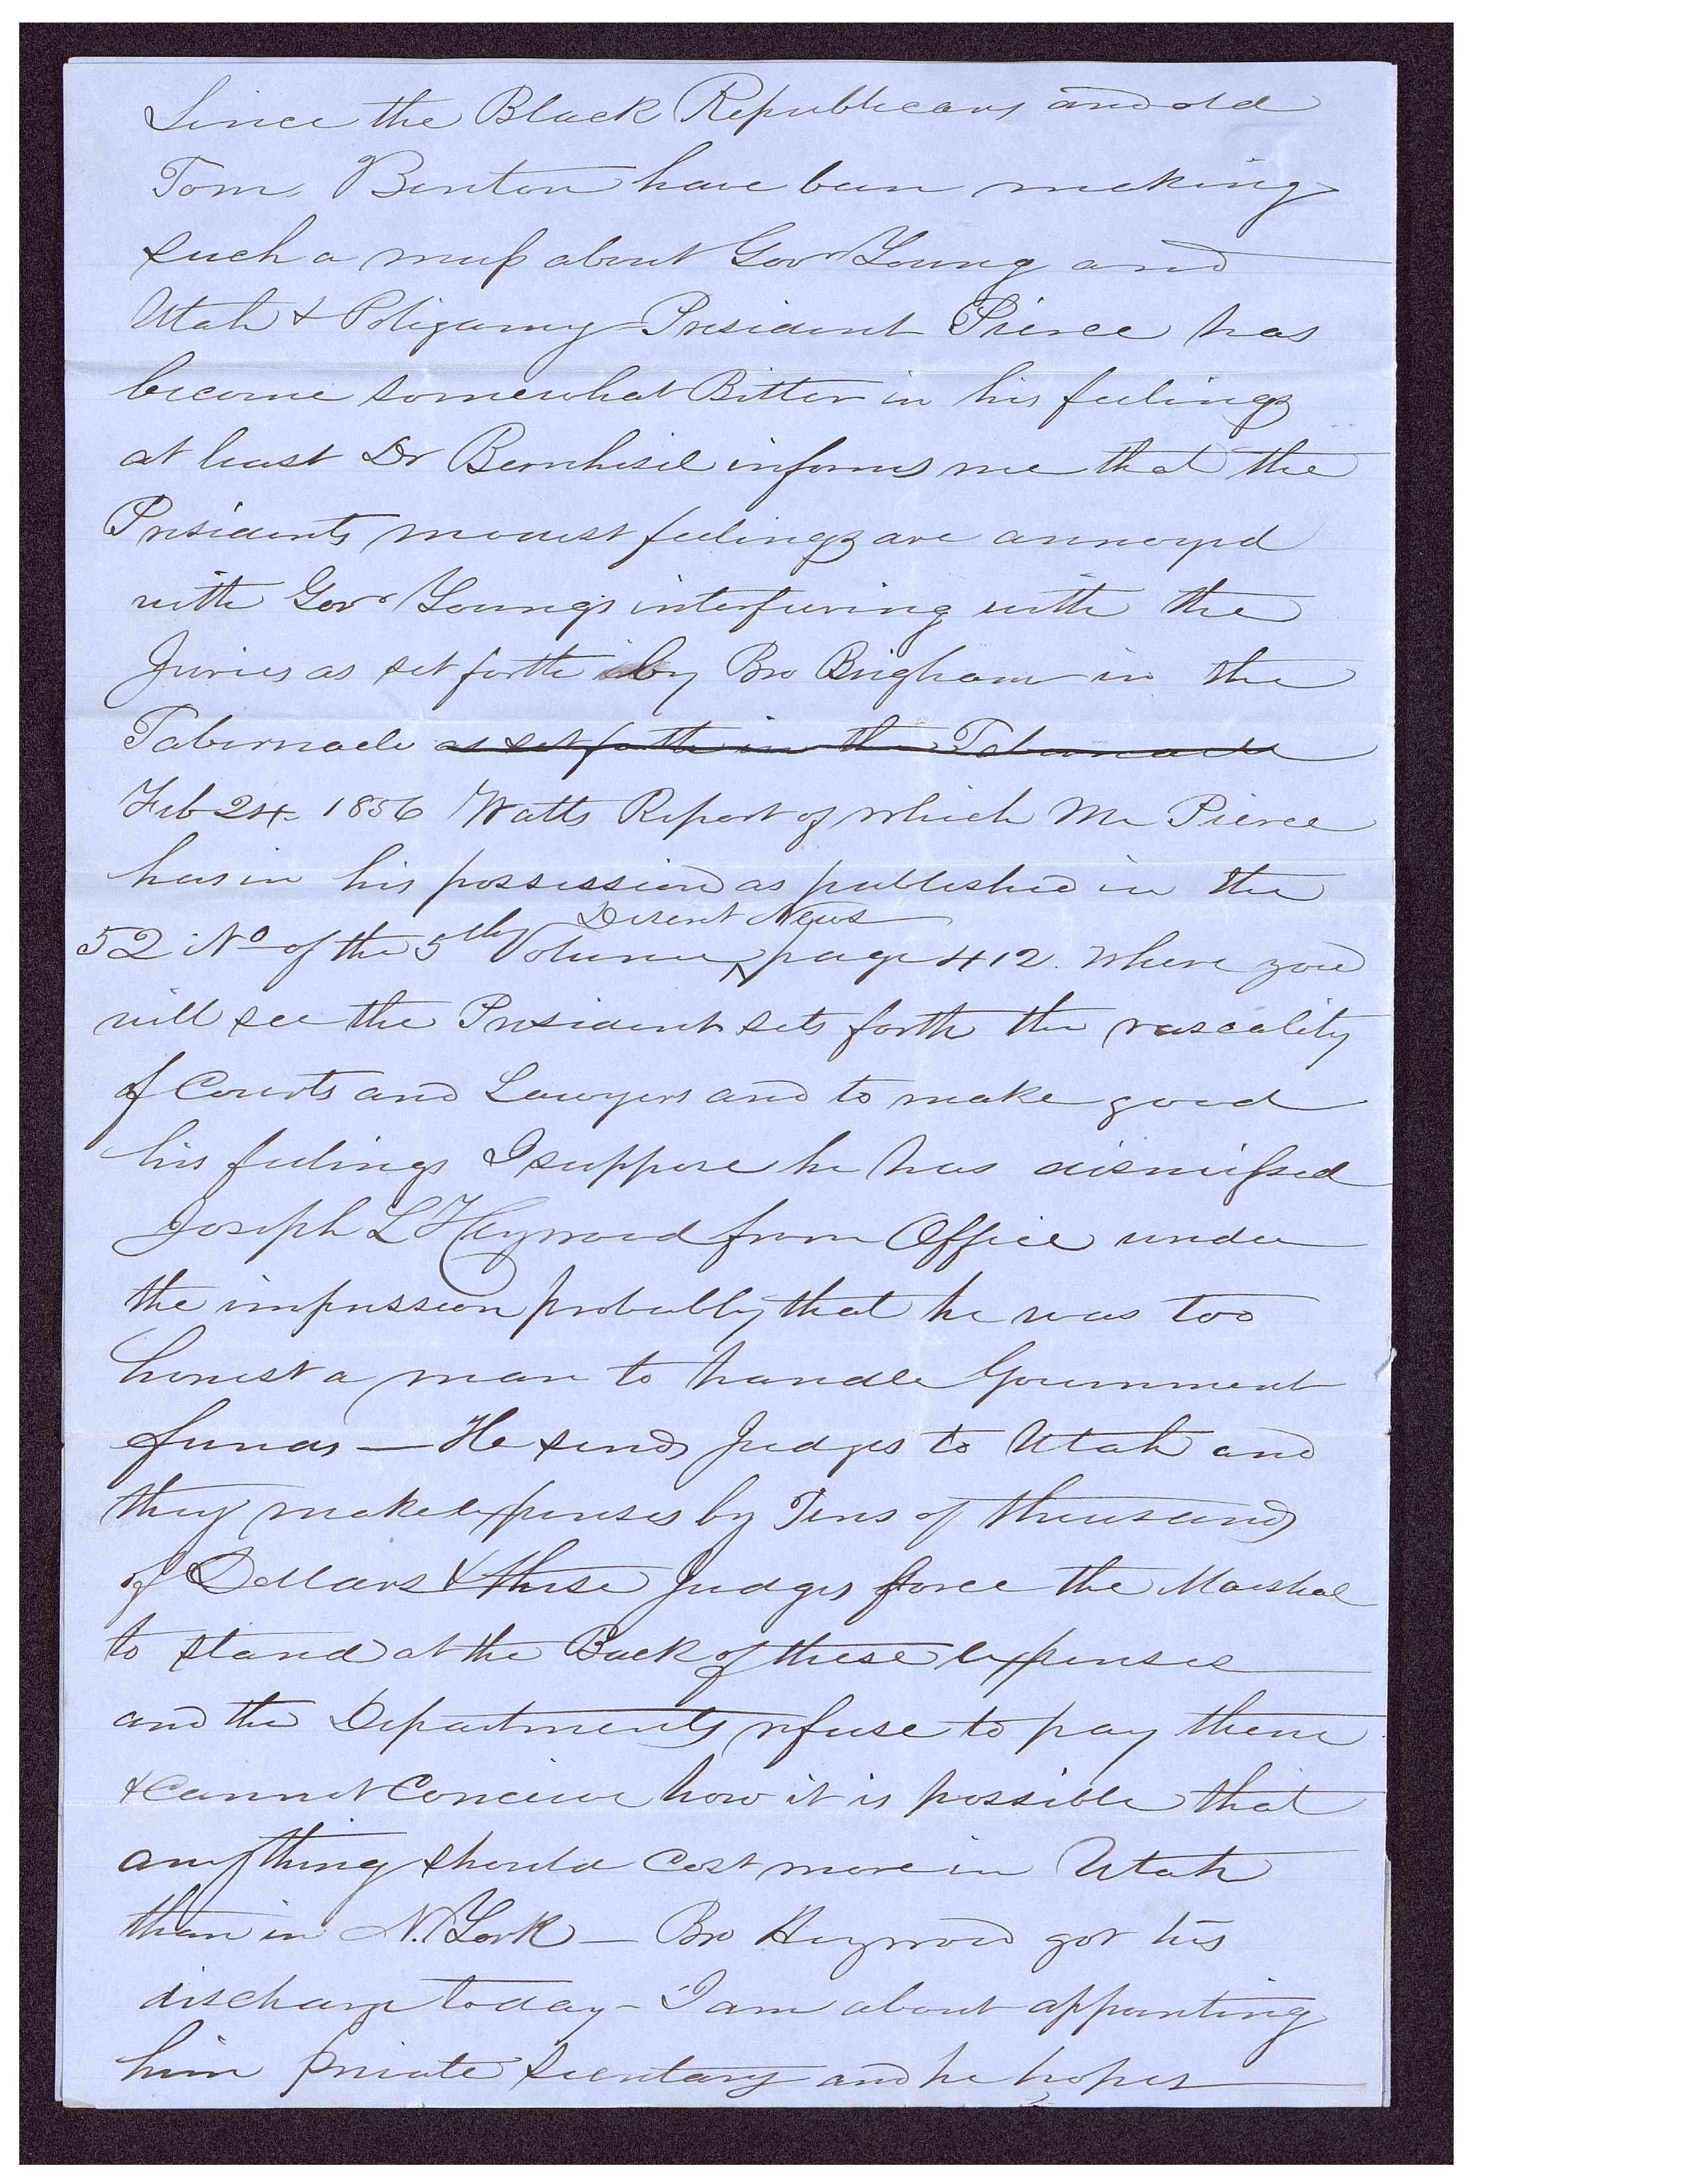 Since the Black Republicans and old
Tom Benton have been making
such a muss about Gov Young and
Utah & Poligamy President Pierce has
become somewhat Bitter in his feelings
at least Dr Bernhisel informs me that the
Presidents modest feelings are annoyed
with Gov Youngs interfering with the
Juries as set forth by Bro Brigham in the
Tabernacle as set forth in the Tabernacle
Feb 24 1856 Watts Report of which Mr Pierce
has in his possession as published in the
Deseret News
52 No of the 5th Volume ^ page 412. Where you
will see the President sets forth the rascality
of Courts and Lawyers and to make good
his feelings I suppose he has dismissed
Joseph L Heywood from Office under
the impression probably that he was too
honest a man to handle Government
funds — He sends Judges to Utah and
they make expenses by Tens of thousands
of Dollars & these Judges force the Marshal
to stand at the Back of these expenses
and the Departments refuse to pay them
& Cannot Conceive how it is possible that
anything should Cost more in Utah
than in N. York — Bro Heywood got his
discharge today - I am about appointing
him private Secretary and he hopes